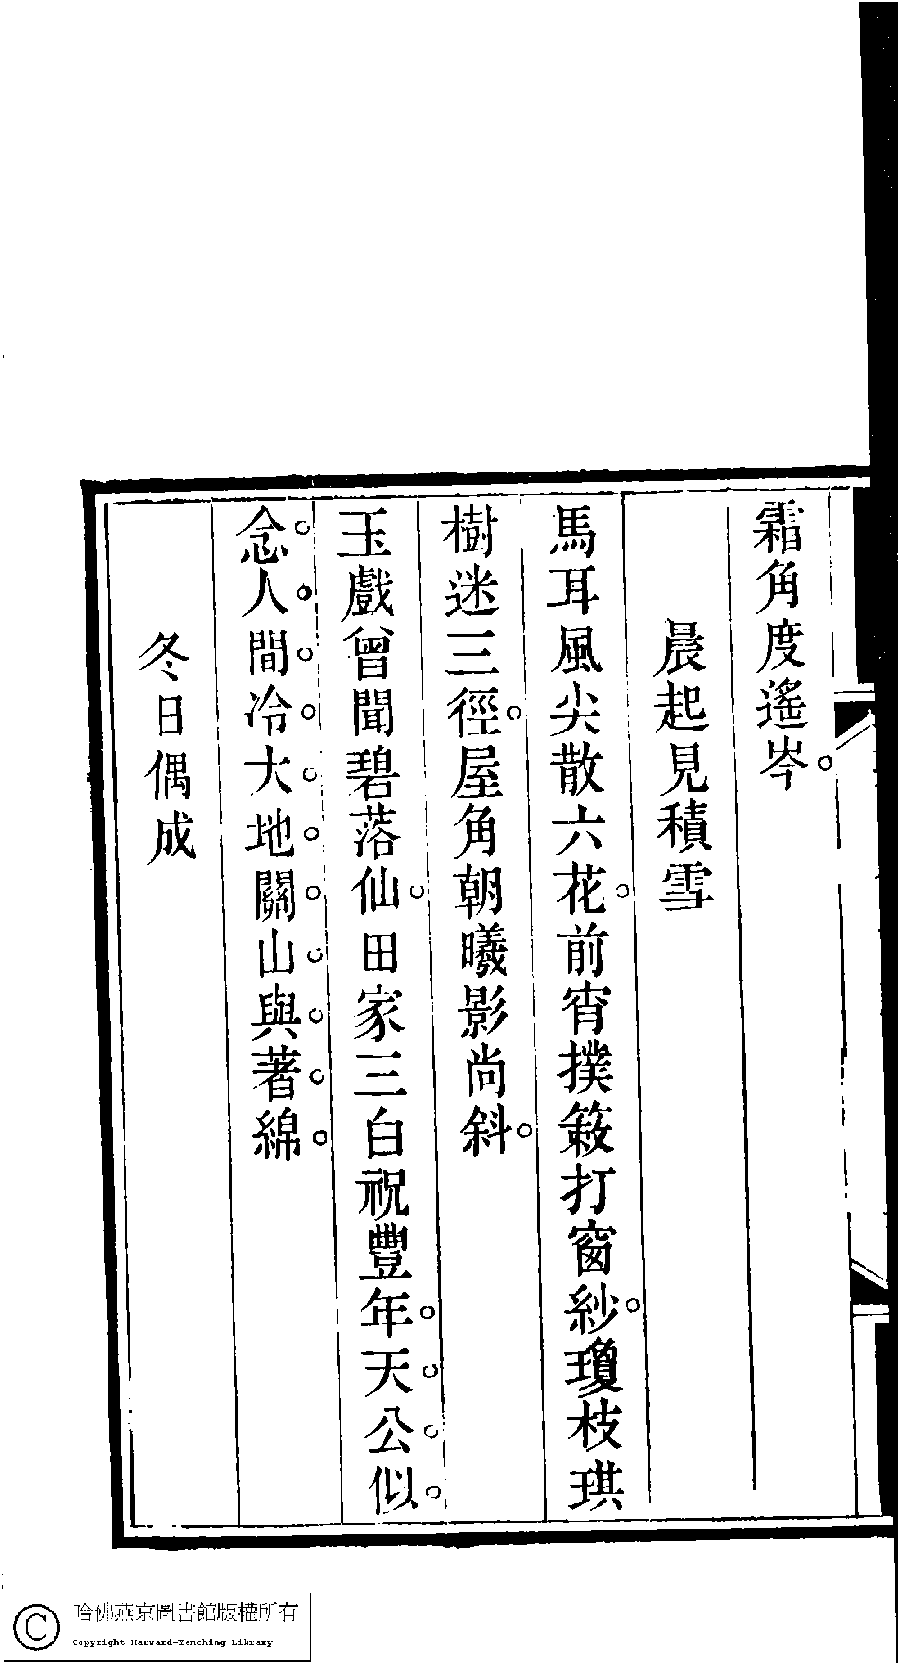 霜角度遙岑。
晨起見積雪
馬耳風尖散六花。前宵撲簌打窗紗。瓊枝琪
樹迷三徑。屋角朝曦影尚斜。
玉戲曾聞碧落仙。田家三白祝豐年。天。公。似。
念。人。間。冷。大。地。關。山。與。著。綿。
冬日偶成
哈佛燕京圖書館版權所有
Copyright Harvard-Yenching Library